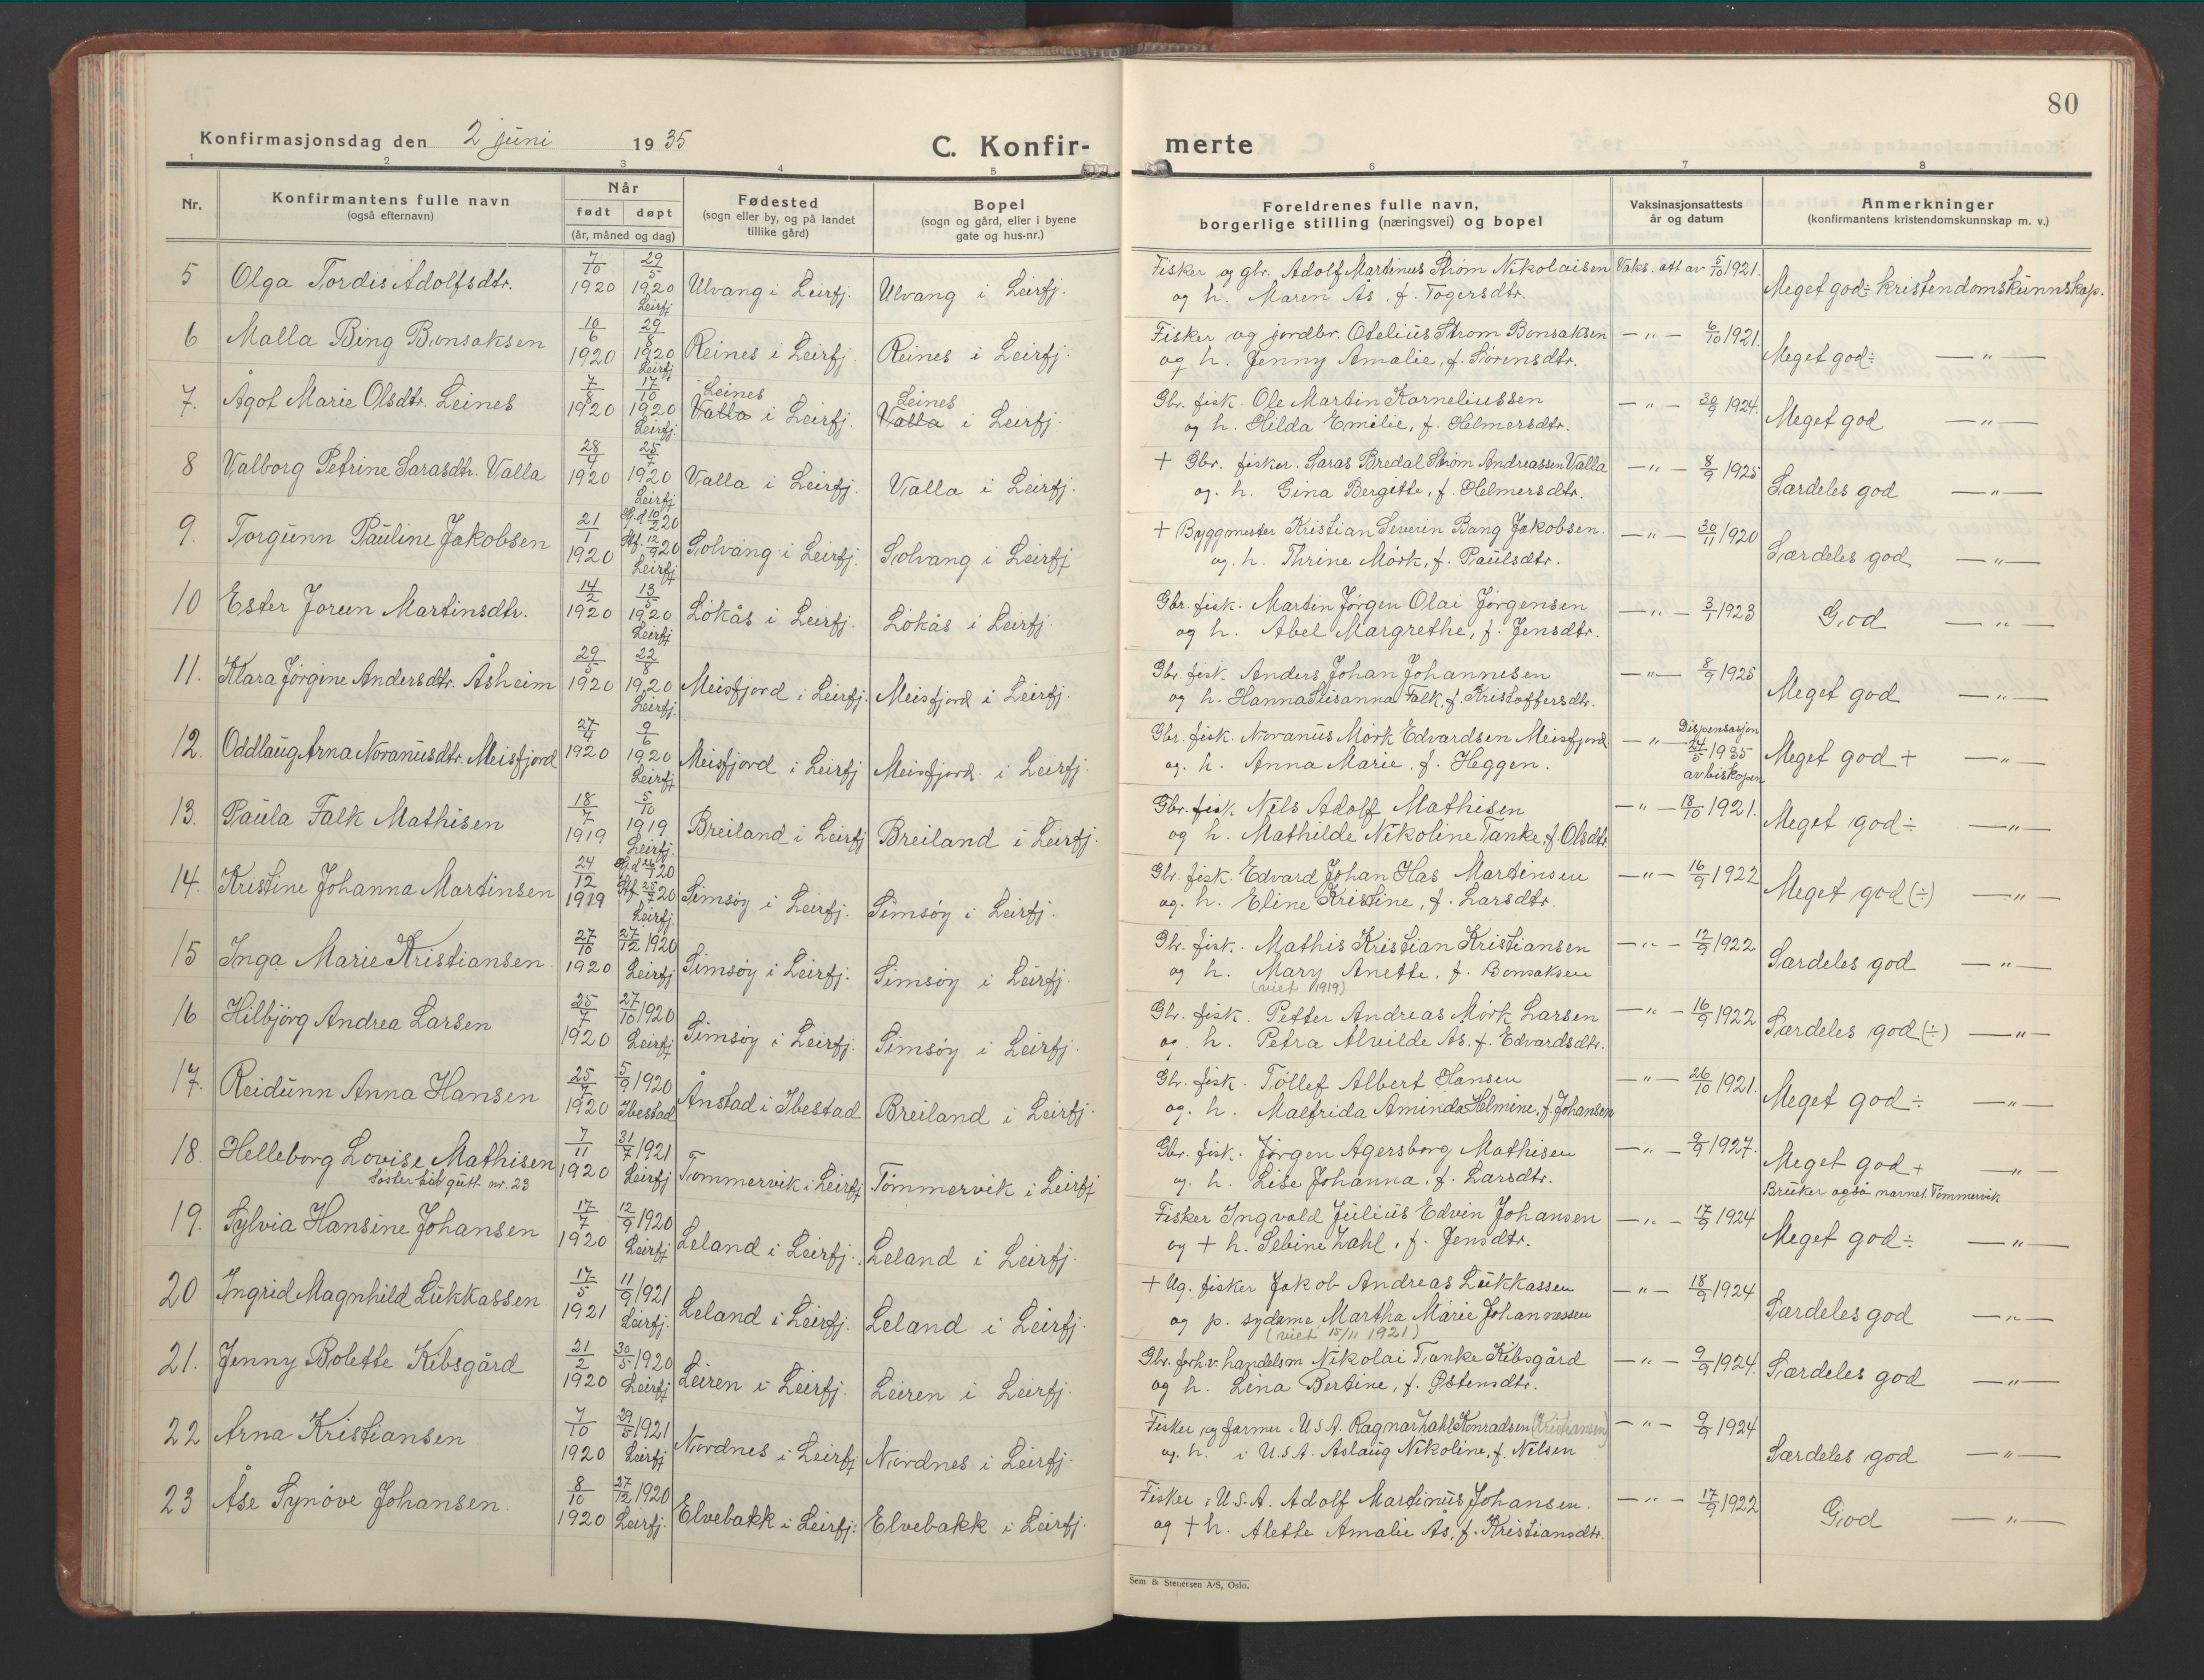 80
Konfirmasjonsdag den 2 juni 1935
C. Konfir-
merte
1 2 3 4 5 6 7 8
Nr.
Konfirmantens fulle navn
(også efternavn)
Når
født døpt
(år, måned og dag)
Fødested
(sogn eller by, og på landet
tillike gård)
Bopel
(sogn og gård, eller i byene
gate og hus-nr.)
Foreldrenes fulle navn,
borgerlige stilling (næringsvei) og bopel
Vaksinasjonsattests
år og datum
Anmerkninger
(konfirmantens kristendomskunnskap m. v.)
5 Olga Tordis Adolfsdtr. 7/10 1920 29/5 1920 Leirfj. Ulvang i Leirfj. Ulvang i Leirfj.
Fisker og gbr. Adolf Martinus Strøm Nikolaisen Vaks. att av 5/10 1921.
og h. Maren As, f. Togersdtr. Meget god÷ kristendomskunnskap.
6 Malla Bing Bonsaksen 10/6 1920 29/8 1920 Leirfj. Reines i Leirfj. Reines i Leirfj.
Fisker og jordbr. Otelius Strøm Bonsaksen —"— 6/10 1921.
og h. Jenny Amalie, f. Sørensdtr. Meget god÷ —"—
7. Ågot Marie Olsdtr. Leines 7/8 1920 17/10 1920 Leirfj. Leines Valla i Leirfj. Leines Valla i Leirfj.
Gbr. fisk. Ole Martin Korneliussen —"— 30/9 1924.
og h. Hilda Emilie, f. Helmersdtr. Meget god —"—
8 Valborg Petrine Sarasdtr. Valla 28/4 1920 25/7 1920 Leirfj Valla i Leirfj. Valla i Leirfj.
+ Gbr. fisker. Saras Bredal Strøm Andreassen Valla —"— 8/9 1925
og. h. Gina Bergitte, f. Helmersdtr. Særdeles god —"—
9. Torgunn Pauline Jakobsen 21/1 1920 Hj.d 10/2 20 Stf. 12/9 20 Leirfj Solvang i Leirfj. Solvang i Leirfj
+ Byggmester Kristian Severin Bang Jakobsen. —"— 30/11 1920
og. h. Thrine Mørk, f. Paulsdtr. Særdeles god —"—
10 Ester Jorun Martinsdtr. 14/2 1920 13/5 1920 Leirfj Løkås i Leirfj. Løkås i Leirfj.
Gbr. fisk. Martin Jørgen Olai Jørgensen —"— 3/7 1923
og h. Abel Margrethe, f. Jensdtr. God —"—
11. Klara Jørgine Andersdtr. Åsheim 29/5 1920 22/8 1920 Leirfj. Meisfjord i Leirfj. Meisfjord i Leirfj.
Gbr. fisk. Anders Johan Johannesen —"— 8/9 1925
og h. Hanna Susanna Falk, f. Kristoffersdtr. Meget god —"—
12. Oddlaug Arna Noranusdtr. Meisfjord 27/4 1920 9/6 1920 Leirfj Meisfjord i Leirfj Meisfjord i Leirfj.
Gbr. fisk. Noranus Mørk Edvardsen Meisfjord —"— Dispensasjon 24/5 1935 av biskopen
og. h. Anna Marie, f. Heggen. Meget god + —"—
13. Paula Falk Mathisen 18/7 1919 5/10 1919 Leirfj. Breiland i Leirfj Breiland i Leirfj.
Gbr. fisk. Nils Adolf Mathisen —"— 18/10 1921.
og h. Mathilde Nikoline Tanke, f. Olsdtr Meget god÷ —"—
14. Kristine Johanna Martinsen 24/12 1919 Hj.d 26/1 20 Stf. 25/7 20 Leirfj. Simsøy i Leirfj. Simsøy i Leirfj.
Gbr. fisk. Edvard Johan Has Martinsen —"— 16/9 1922
og. h. Eline Kristine, f. Larsdtr. Meget god (÷) —"—
15 Inga Marie Kristiansen 27/10 1920 27/12 1920 Leirfj Simsøy i Leirfj. Simsøy i Leirfj.
Gbr. fisk. Mathis Kristian Kristiansen —"— 12/9 1922
og h. Mary Anette, f. Bonsaksen Særdeles god —"—
(viet 1919)
16 Hilbjørg Andrea Larsen 25/7 1920 27/10 1920 Leirfj Simsøy i Leirfj. Simsøy i Leirfj.
Gbr. fisk. Petter Andreas Mørk Larsen —"— 16/9 1922
og. h. Petra Alvilde As. f. Edvardsdtr. Særdeles god (÷) —"—
17. Reidunn Anna Hansen 25/7 1920 5/9 1920 Ibestad Ånstad i Ibestad Breiland i Leirfj.
Gbr. fisk. Tollef Albert Hansen —"— 26/10 1921.
og. h. Malfrida Aminda Helmine, f. Johansen Meget god÷ —"—
18. Helleborg Lovise Mathisen 7/11 1920 31/7 1921 Leirfj Tømmervik i Leirfj Tømmervik i Leirfj
Søster til gutt nr. 23
Gbr. fisk. Jørgen Agersborg Mathisen —"— 9/9 1927.
og. h. Lise Johanna, f. Larsdtr. Meget god + —"—
Bruker også navnet Tømmervik
19. Sylvia Hansine Johansen 17/7 1920 12/9 1920 Leirfj Leland i Leirfj. Leland i Leirfj.
Fisker Ingvald Julius Edvin Johansen —"— 17/9 1924
og + h. Sebine Zahl, f. Jensdtr. Meget god÷ —"—
20 Ingrid Magnhild Lukkassen 17/5 1921 11/9 1921 Leirfj. Leland i Leirfj. Leland i Leirfj.
+ Ug. fisker Jakob Andreas Lukkassen —"— 18/9 1924
og p. sydame Martha Marie Johannessen Særdeles god —"—
(viet 15/11 1921)
21. Jenny Bolette Kibsgård 21/2 1920 30/5 1920 Leirfj Leiren i Leirfj. Leiren i Leirfj.
Gbr. forh.v. handelsm Nikolai Tanke Kibsgård —"— 9/9 1924.
og h. Lina Bertine, f. Østensdtr. Særdeles god —"—
22 Arna Kristiansen 7/10 1920 29/5 1921 Leirfj Nordnes i Leirfj Nordnes i Leirfj.
Fisker og farmer i U.S.A. Ragnar Zahl Konradsen (Kristiansen) —"— 9/9 1924
og. h. i U.S.A. Aslaug Nikoline, f. Nilsen Særdeles god —"—
23 Åse Synøve Johansen. 8/10 1920 27/12 1920 Leirfj. Elvebakk i Leirfj. Elvebakk i Leirfj.
Fisker i U.S.A. Adolf Martinus Johansen. —"— 17/9 1922
og + h. Alette Amalie Ås, f. Kristiansdtr. God —"—
Sem & Stenersen A/S, Oslo.